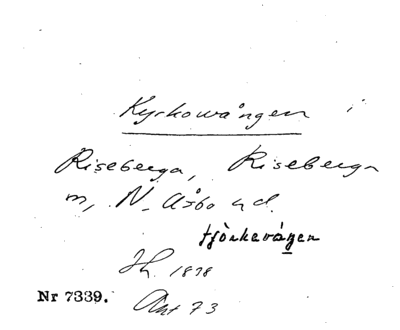 Kyrkowången i
Riseberga, Riseberga
m, N. Åsbo hd.
tjörkevång̲en
Jh. 1878
Nr 7339. Akt 73